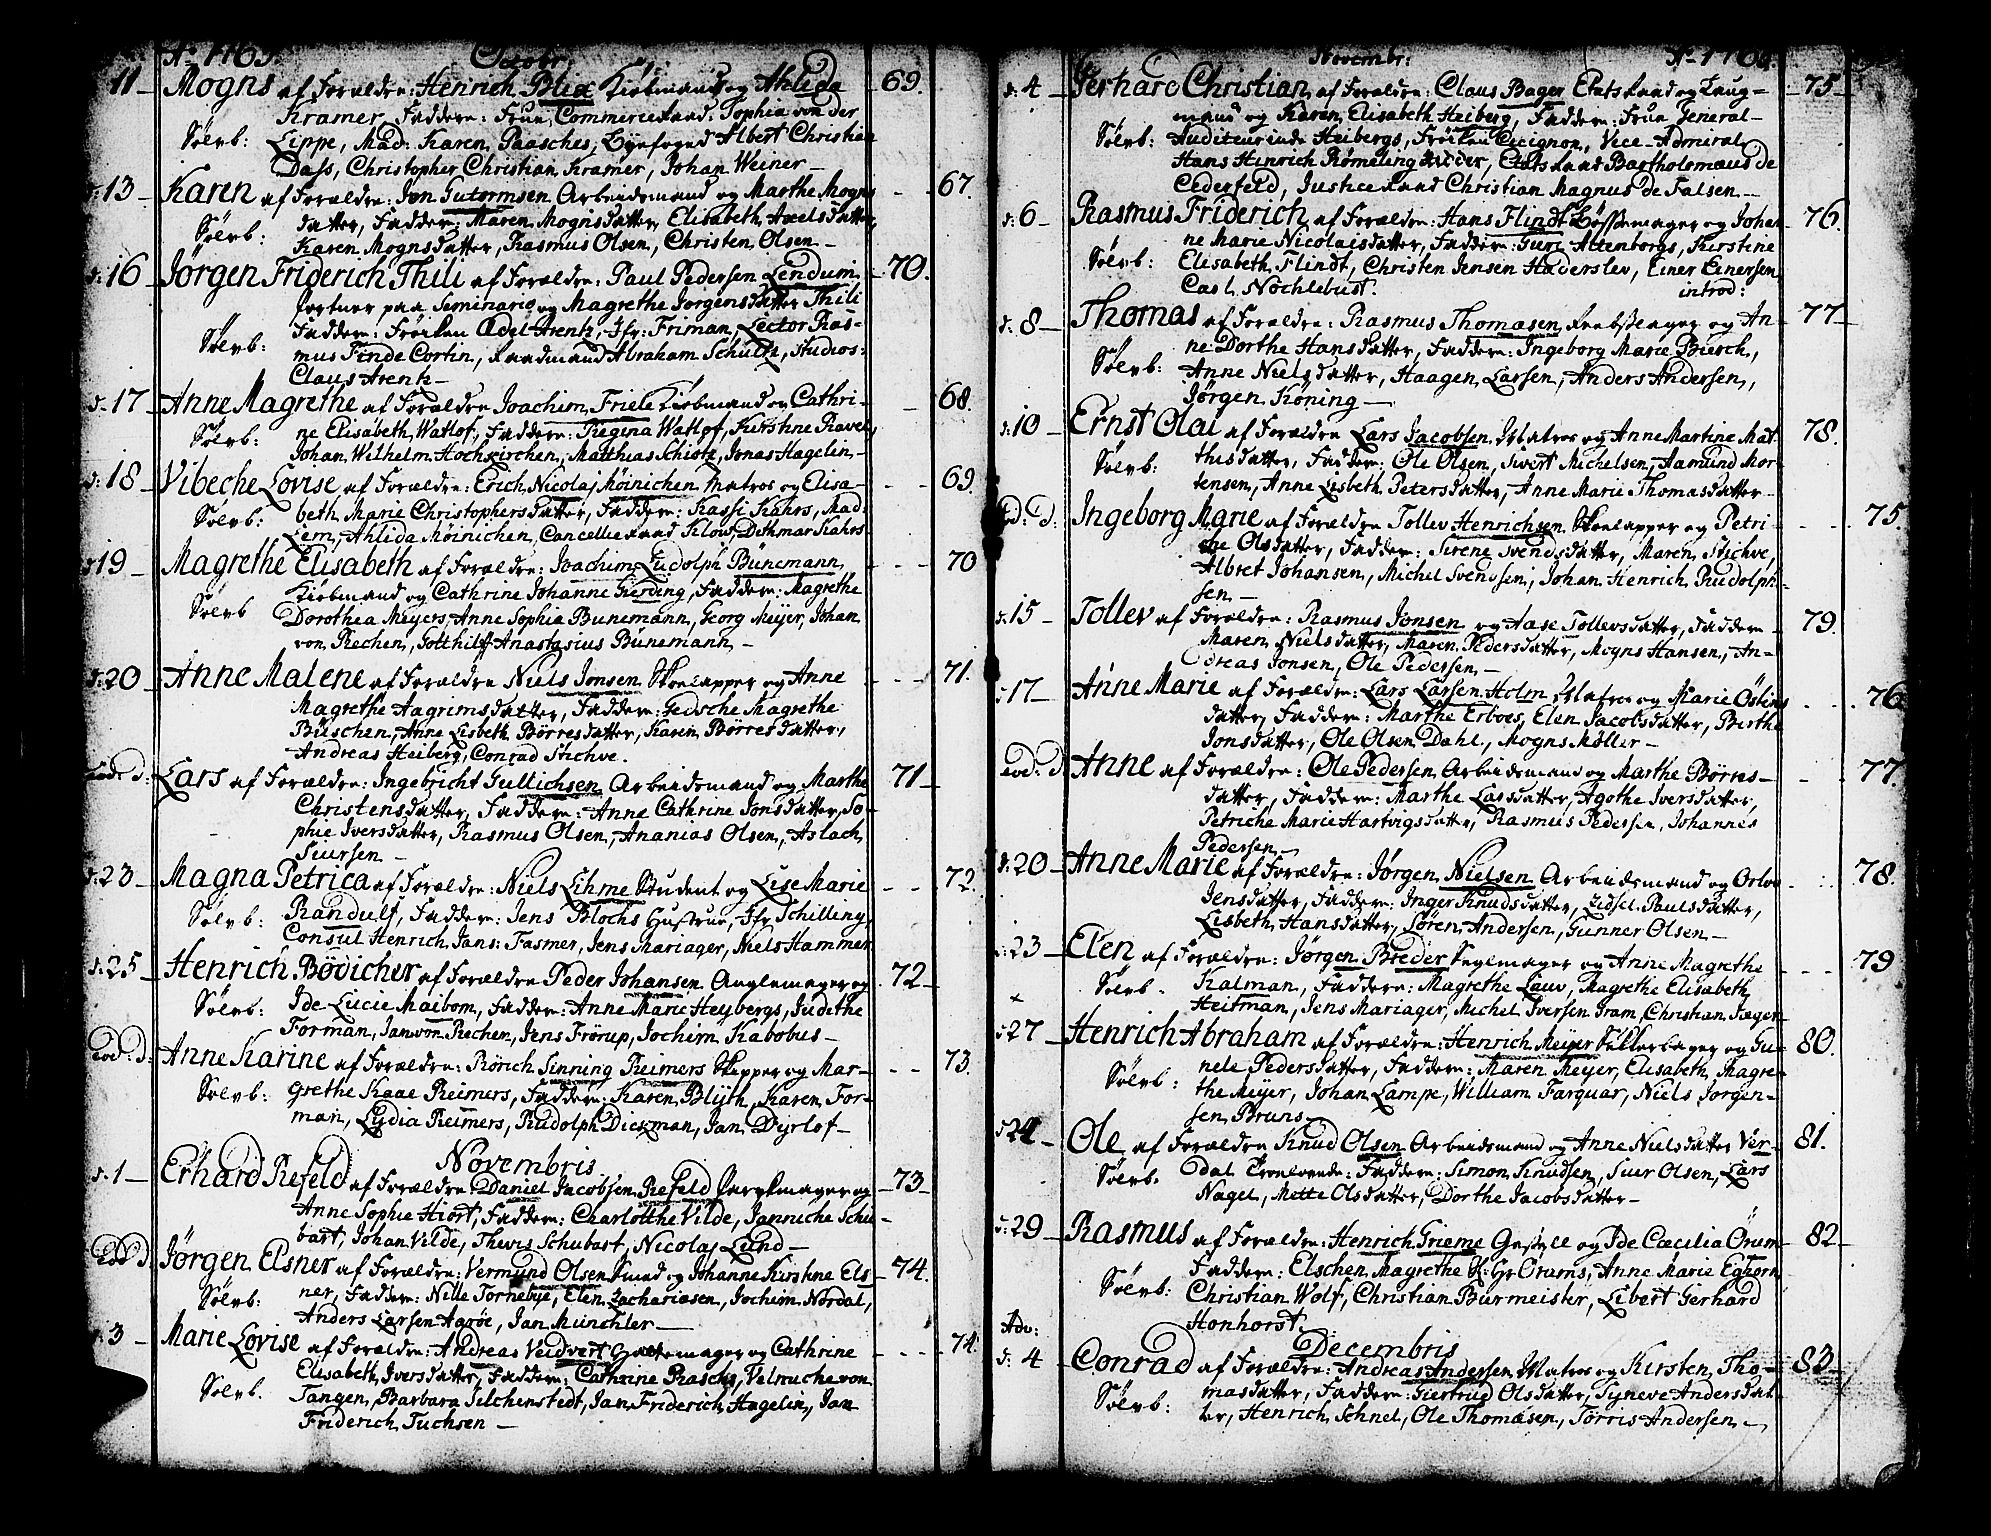 Ao 1765. Octobr:
11 Mogns af Forældre: Henrich Blix Kiøbmand og Ahlida 69.
Kramer, Faddere: Frue Commerceraad: Sophia von der
Sølvb: Lippe, Mad: Karen Paasches, Byefoged Albert Christian
Dass, Christopher Christian Kramer, Johan Weiner
d: 13 Karen af Forældre: Jon Gutormsen Arbeidsmand og Marthe Mogns 67.
Sølvb: datter, Faddere: Maren Mognsdatter, Elisabeth Axelsdatter,
Karen Mognsdatter, Rasmus Olsen, Christen Olsen
d: 16 Jørgen Friderich Thili af Forældre: Paul Pedersen Lendum 70.
fortner paa Seminario og Magrethe Jørgensdatter Thili
Sølvb: Faddere: Frøiken Adel Arentz, Jfr: Friman, Lector Ras-
mus Finde Cortin, Raadmand Abraham Schultz, Studios:
Claus Arentz
d: 17 Anne Magrethe af Forældre Joachim Friele Kiøbmand og Cathri- 68.
Sølvb: ne Elisabeth Watlof, Faddere: Regina Watlof, Kirstine Raven,
Johan Wilhelm Hochkirchen, Matthias Schiøtz, Jonas Hagelin,
d: 18 Vibeche Lovise af Forældre: Erich Nicolaj Møinichen Matros og Elisa- 69.
Sølvb: beth Marie Christophersdatter, Faddere: Kassi Kahrs, Mad:
Lem, Ahlida Møinichen, Cancellieraad Kilow, Dithmar Kahrs
d: 19 Magrethe Elisabeth af Forældre: Joachim Ludolph Bünemann 70
Kiøbmand og Cathrine Johanne Gierding, Faddere: Magrethe
Sølvb Dorothea Meyers, Anne Sophia Bunemann, Georg Meyer, Johan
von Rechen, Gotthilff Anastasius Bunemann
d: 20 Anne Malene af Forældre Niels Jonsen Skoelapper og Anne 71.
Magrethe Aagrimsdatter, Faddere: Gedsche Magrethe
Büschen, Anne Lisbeth Børresdatter, Karen Børresdatter,
Andreas Heiberg, Conrad Stichve.
Eod: d: Lars af Forældre: Ingebricht Gullichsen Arbeidsmand og Marthe 71
Christensdatter, Faddere: Anne Cathrine Jonsdatter, So-
phie Iversdatter, Rasmus Olsen, Ananias Olsen, Aslach
Siursen
d: 23 Magna Petrica af Forældre: Niels Lihme Student og Lise Marie 72.
Sølvb: Randulf, Faddere: Jens Blochs Hustrue, Jfr Schilling,
Consul Henrich Jans: Fasmer, Jens Mariager, Niels Hammer
d: 25 Henrich Bødicher af Forældre Peder Johansen Anglemager og 72
Sølvb: Ide Lucie Maibom, Faddere: Anne Marie Heybergs, Judethe
Forman, Jan von Rechen, Jens Frørup, Jochim Kabobus
Eod: d: Anne Karine af Forældre: Rørich Sinning Reimers Skipper og Mar- 73.
Sølvb: grethe Kaae Reimers, Faddere: Karen Blyth, Karen For-
man, Lydia Reimers, Rudolph Dickman, Jan Dyrlof
Novembris
d: 1 Erhard Refeld af Forældre: Daniel Jacobsen Refeld Parykmager og 73
Anne Sophie Hiort, Faddere: Charlotthe Vilde, Janniche Schu-
bart, Johan Vilde, Thevis Schubart, Nicolaj Lund
Eod d. Jørgen Elsner af Forældre: Vermund Olsen Smed og Johanne Kirstine Els 74.
Sølvb: ner, Faddere: Nille Tornebye, Elen Zachariasen, Jochim Nordal,
Anders Larsen Agrøe, Jan Münchler
d: 3 Marie Lovise af Forældre: Andreas Veidvert og Cathrine 74.
Elisabeth Iversdatter, Faddere: Cathrine Raschs, Velmuche von
Sølvb. Tangen, Barbara Silchenstedt, Jan Friderich Hagelin, Jan
Friderich Tuchsen
Novembr: Ao 176
d: 4 Gerhard Christian af Forældre: Claus Bager Etats Raad og Laug- 75
mand og Karen Elisabeth Heiberg, Faddere: Frue General-
Sølvb: Auditeurinde Heibergs, Frøiken Cicignon, Vice-Admiral
Hans Hinrich Rømeling Ridder, Etats Raad Bartholomæus de
Cederfeld, Justice Raad Christian Magnus de Falsen
d: 6 Rasmus Friderich af Forældre: Hans Flindt Bøssemager og Johan 76.
ne Marie Nicolaisdatter, Faddere: Guri Altenborgs, Kirstine
Sølvb: Elisabeth Flindt, Christen Jensen Haderslev, Einer Einersen
Carl Nøchlebust. introd:
d: 8 Thomas af Forældre: Rasmus Thomasen Reebslager og An- 77
ne Dorthe Hansdatter, Faddere: Ingeborg Marie Bierch,
Sølvb: Anne Nielsdatter, Haagen Larsen, Anders Andersen,
Jørgen Køning
d: 10 Ernst Olai af Forældre Lars Jacobsen Matros og Anne Martine Mat- 78.
Sølvb: thisdatter, Faddere: Ole Olsen, Sivert Michelsen, Aamund Mor-
tensen, Anne Lisbeth Petersdatter, Anne Marie Thomasdatter
Eod: d: Ingeborg Marie af Forældre Tollev Henrichsen Skoelapper og Petri- 75
che Olsdatter, Faddere: Sirene Svendsdatter, Maren Stichve,
Albret Johansen, Michel Svendsen, Johan Henrich Rudolph-
sen
d: 15 Tollev af Forældre: Rasmus Jonsen og Aase Tollevsdatter, Faddere 79.
Maren Nielsdatter, Maren Pedersdatter, Mogns Hansen, An-
dreas Jonsen, Ole Pedersen
d: 17 Anne Marie af Forældre: Lars Larsen Holm Matros og Marie Østens 76
datter, Faddere: Marthe Erboes, Elen Jacobsdatter, Birthe
Jonsdatter, Ole Olsen Dahl, Mogns Møller
Eod: d Anne af Forældre: Ole Pedersen Arbeidsmand og Marthe Børres- 77.
datter, Faddere: Marthe Larsdatter, Agothe Iversdatter,
Petriche Marie Hartvigsdatter, Rasmus Pedersen, Johannes
Pedersen
d: 20 Anne Marie af Forældre: Jørgen Nielsen Arbeidsmand og Orloe 78.
Jensdatter, Faddere: Inger Knudsdatter, Zidsel Paulsdatter,
Lisbeth Hansdatter, Søren Andersen, Gunner Olsen
d: 23 Elen af Forældre: Jørgen Breder Segelmager og Anne Magrethe 79
Sølvb. Kalman, Faddere: Magrethe Lauv, Magrethe Elisabeth
Heitman, Jens Mariager, Michel Iversen Fram, Christian Jæger
d: 27 Henrich Abraham af Forældre: Henrich Meyer Sukkerbager og Gu- 80.
Sølvb: nele Pedersdatter, Faddere: Maren Meyer, Elisabeth Magre-
the Meyer, Johan Lampe, William Farquar, Niels Jørgen-
sen Bruns
d 24 Ole af Forældre Knud Olsen Arbeidsmand og Anne Nielsdatter Ver- 81.
Sølvb. dal Troelovede: Faddere: Simon Knudsen, Siur Olsen, Lars
Nagel, Mette Olsdatter, Dorthe Jacobsdatter
d: 29 Rasmus af Forældre: Henrich Grieme Gesell og Ide Cæcilia Ørum 82
Faddere: Elschen Magrethe Sl: Hr Orums, Anne Marie Eghorn
Sølvb: Christian Wolf, Christian Burmeister, Libert Gerhard
Honhorst.
Adv: Decembris
d: 4 Conrad af Forældre: Andreas Andersen Matros og Kirsten Tho- 83
masdatter, Faddere: Giertrud Olsdatter, Syneve Andersdat-
Sølvb: ter, Henrich Schnel, Ole Thomasen, Tørris Andersen